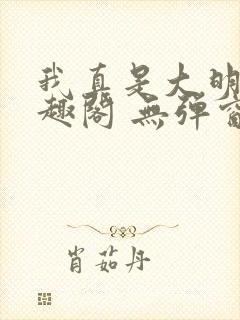 我真是大明
趣閣 無彈窗
肖茹丹